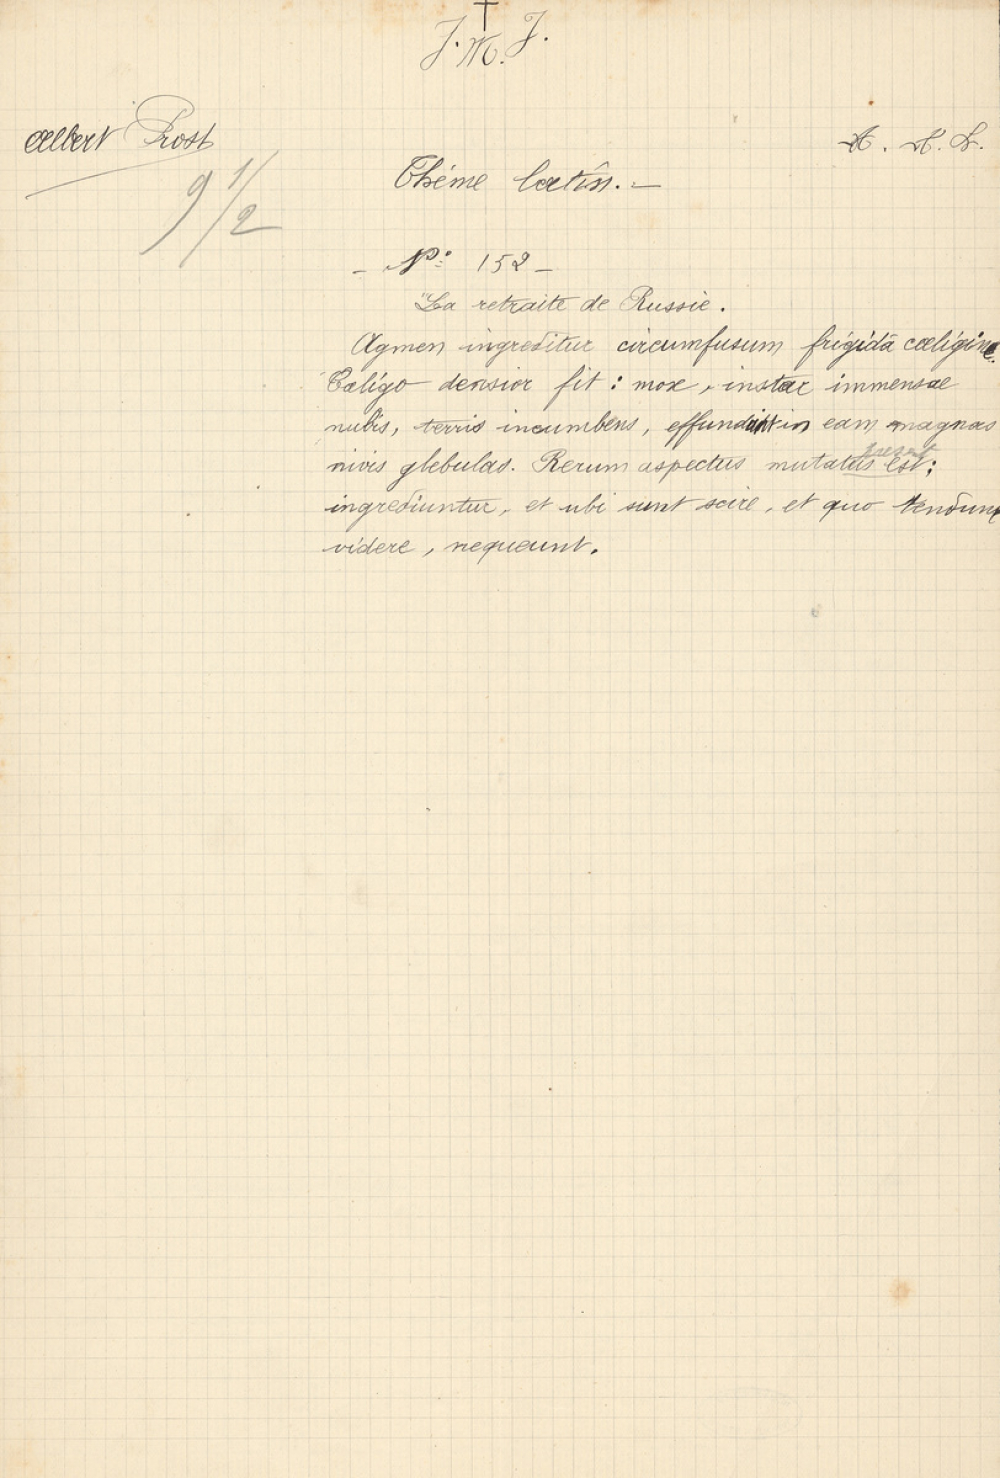 J. M. J.
Albert Prost
A. M. D. G.
9 1/2
Thème latin. —
- N°: 152 -
"La retraite de Russie.
Agmen ingreditur circumfusum frigidâ caligine.
Caligo densior fit : mox, instar immensae
nubis, terris incumbens, effundit in eam magnas
nivis glebulas. Rerum aspectus mutatus est ;
ingrediuntur, et ubi sunt scire, et quo tendunt
videre, nequeunt.